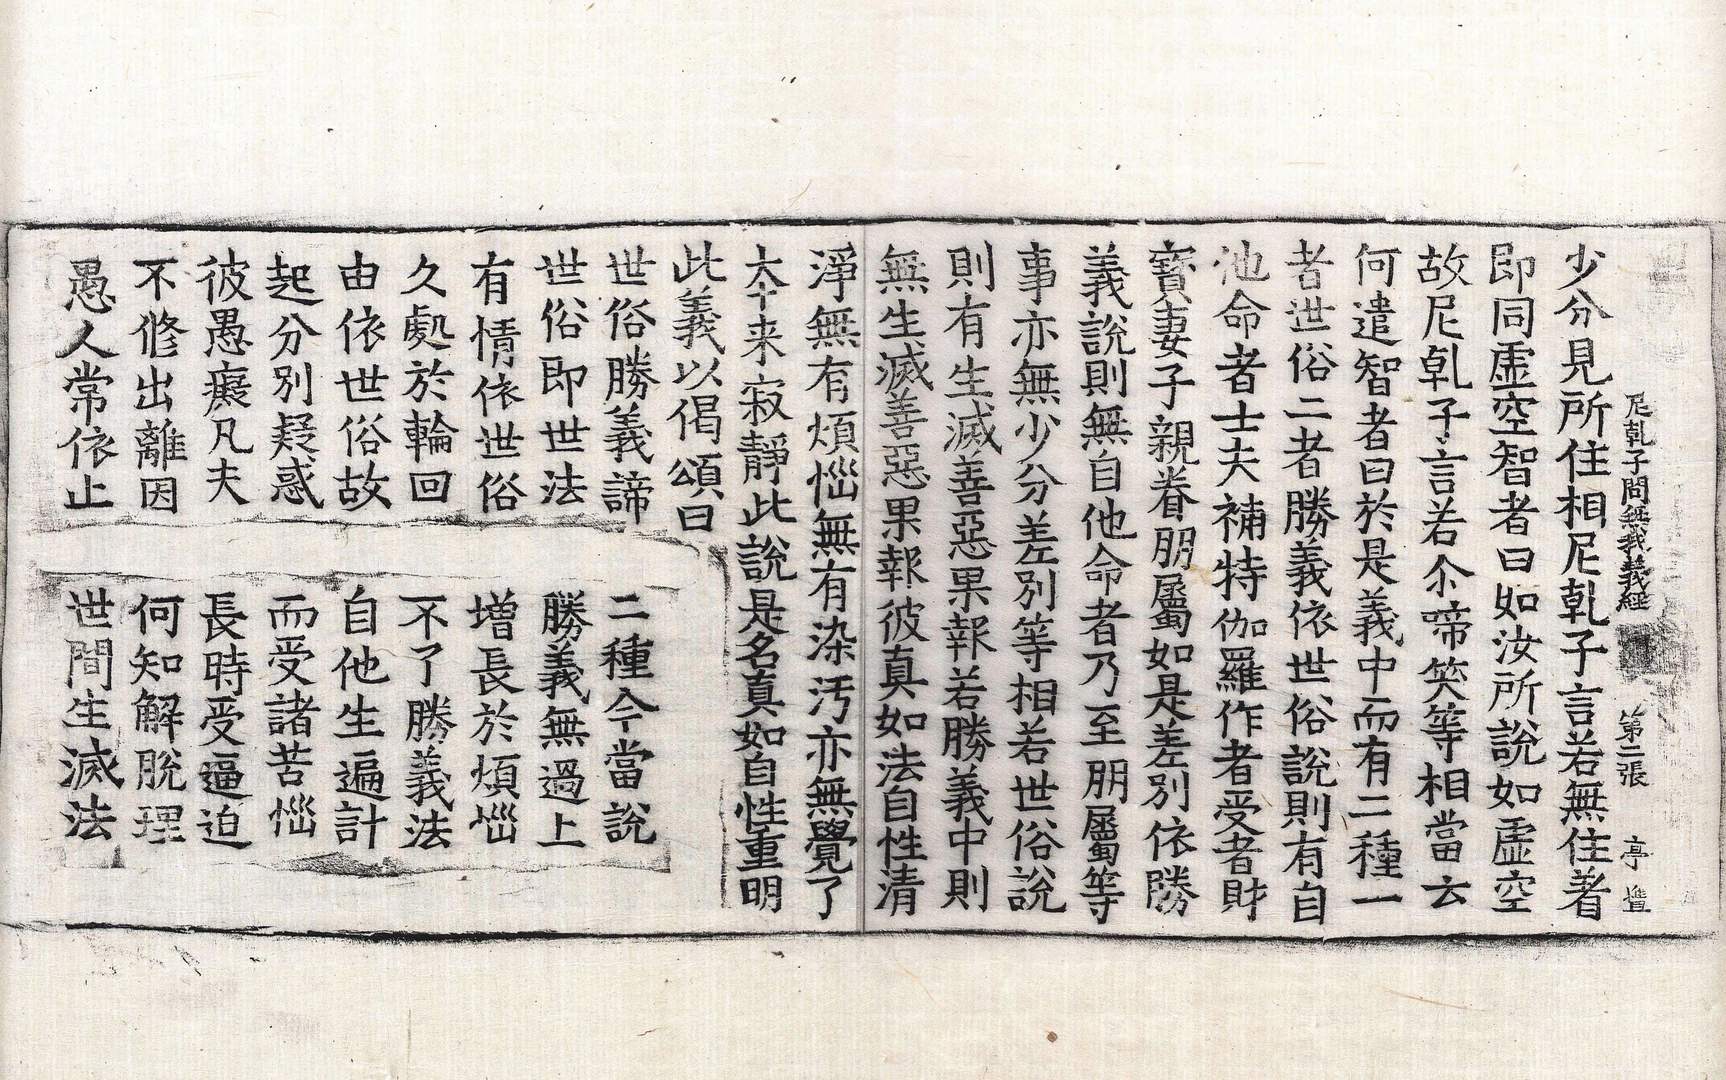 尼乹子問無我義経 第二張 亭
少分見所住相尼乹子言若無住著
即同虚空智者曰如汝所說如虚空
故尼乹子言若尒啼笑等相當云
何遣智者曰於是義中而有二種一
者世俗二者勝義依世俗說則有自
他命者士夫補特伽羅作者受者財
寳妻子親眷朋屬如是差別依勝
義說則無自他命者乃至朋屬等
事亦無少分差別等相若世俗說
則有生滅善惡果報若勝義中則
無生滅善惡果報彼真如法自性清
淨無有煩惱無有染汚亦無覺了
夲来寂靜此說是名真如自性重明
此義以偈頌曰
世俗勝義諦 二種今當說
世俗即世法 勝義無過上
有情依世俗 增長於煩惱
久處於輪回 不了勝義法
由依世俗故 自他生遍計
起分別疑惑 而受諸苦惱
彼愚癡凡夫 長時受逼迫
不修出離因 何知解脫理
愚人常依止 世間生滅法